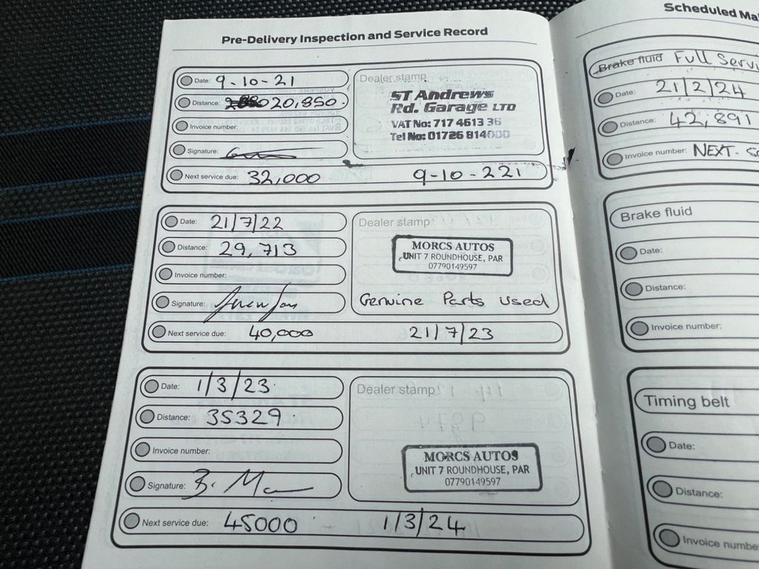 Pre-Delivery Inspection and Service Record
Date: 9-10-21
Distance: 20,850.
Invoice number:
Signature:
Next service due: 32,000 9-10-221
Dealer stamp
ST Andrews
Rd. Garage LTD
VAT No: 717 4613 36
Tel No: 01726 814000
Date: 21/7/22
Distance: 29,713
Invoice number:
Signature:
Next service due: 40,000 21/7/23
Dealer stamp
MORCS AUTOS
UNIT 7 ROUNDHOUSE, PAR
07790149597
Genuine Parts used
Date: 1/3/23.
Distance: 35329.
Invoice number:
Signature:
Next service due: 45000 1/3/24
Dealer stamp
MORCS AUTOS
UNIT 7 ROUNDHOUSE, PAR
07790149597
Scheduled Ma
Brake fluid Full Servi
Date: 21/2/24
Distance: 42,891
Invoice number: NEXT-
Brake fluid
Date:
Distance:
Invoice number:
Timing belt
Date:
Distance:
Invoice numbe